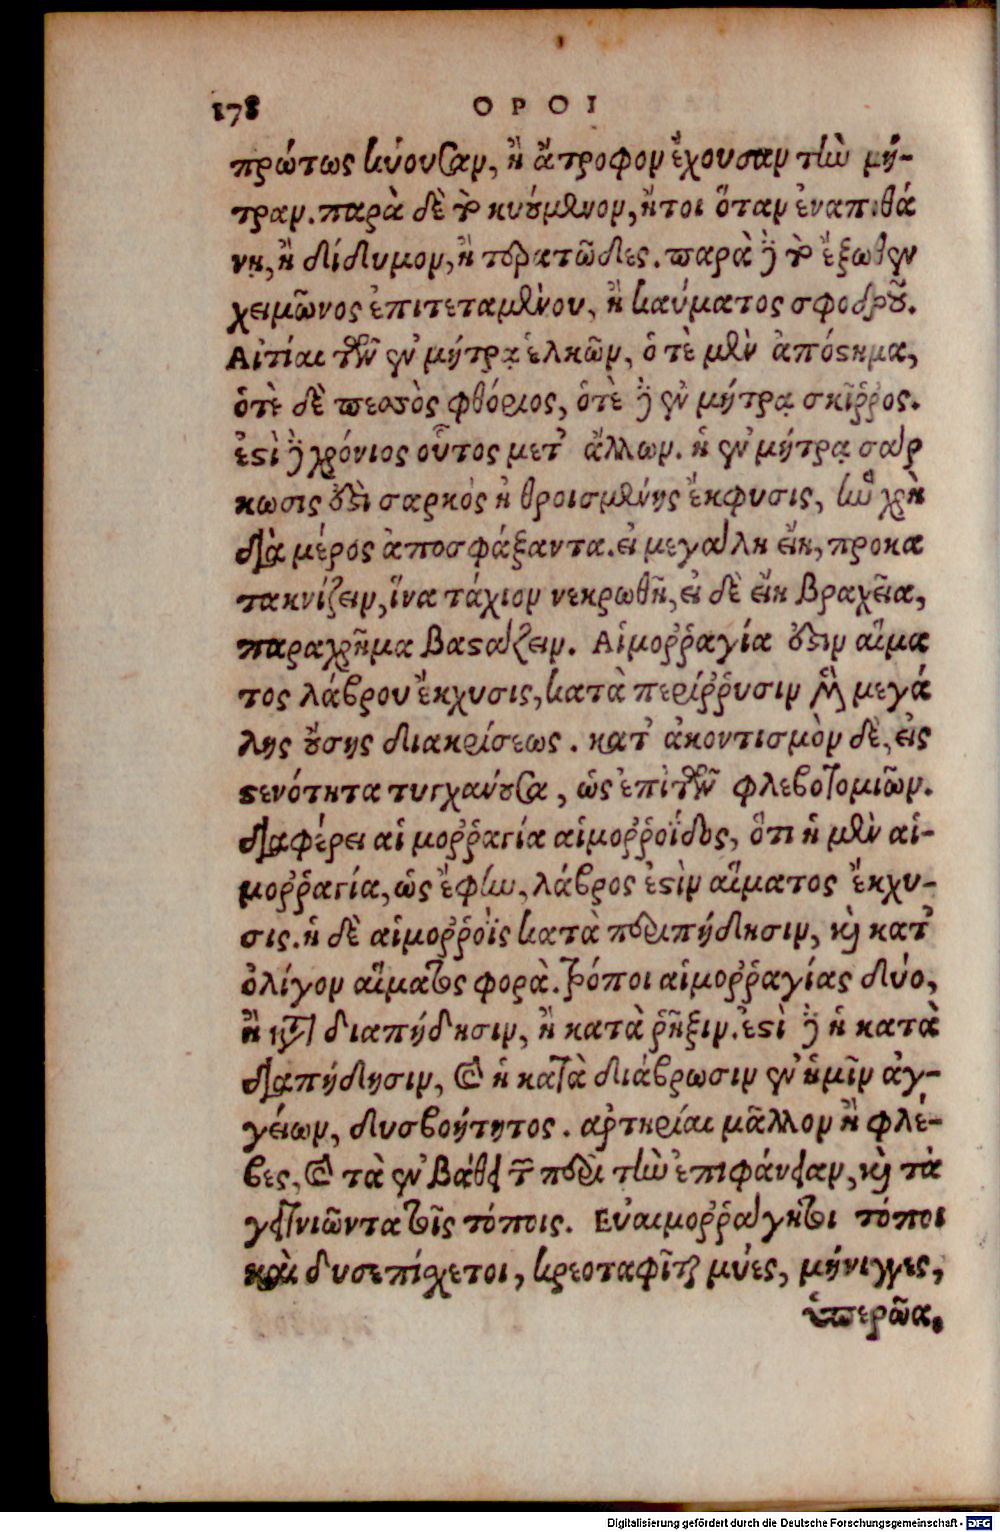 178 ΟΡΟΙ
πρώτως κύουσαν, ἢ ἄτροφον ἔχουσαν τὴν μή-
τραν. παρὰ δὲ τὸ κυούμενον, ἤτοι ὅταν ἐναπ.θά
νῃ, ἢ δίδυμον, ἢ τερατῶδες. παρὰ δὲ τὸ ἔξωθεν
χειμῶνος ἐπιτεταμένου, ἢ καύματος σφοδροῦ.
Αἰτίαι τῶν ἐν μήτρᾳ ἑλκῶν, ὁτὲ μὲν ἀπόστημα,
ὁτὲ δὲ πεσσὸς φθόριος, ὁτὲ δὲ ἐν μήτρᾳ σκίῤῥος.
ἐστὶ δὲ χρόνιος οὗτος μετ' ἄλλων. ἡ ἐν μήτρᾳ σάρ
κωσις ἐστὶ σαρκὸς ἠθροισμένης ἔκφυσις, ἣν χρὴ
διὰ μέρος ἀποσφάξαντα. εἰ μεγάλη εἴη, προκα
τακνίζειν, ἵνα τάχιον νεκρωθῇ, εἰ δὲ εἴη βραχεῖα,
παραχρῆμα βαστάζειν. Αἱμοῤῥαγία ἐστὶν αἵμα
τος λάβρου ἔκχυσις, κατὰ περίῤῥυσιν μὲν μεγά
λης οὔσης διακρίσεως. κατ' ἀκοντισμὸν δὲ, εἰς
στενότητα τυγχανούσα, ὡς ἐπὶ τῶν φλεβοτομιῶν.
διαφέρει αἱμοῤῥαγία αἱμοῤῥοΐδος, ὅτι ἡ μὲν αἱ-
μοῤῥαγία, ὡς ἔφην, λάβρος ἐστὶν αἵματος ἔκχυ-
σις. ἡ δὲ αἱμοῤῥοῒς κατὰ περιπήδησιν, καὶ κατ'
ὀλίγον αἵματος φορὰ. τρόποι αἱμοῤῥαγίας δύο,
ἢ κατὰ διαπήδησιν, ἢ κατὰ ῥῆξιν. ἐστὶ δὲ ἡ κατὰ
διαπήδησιν, καὶ ἡ κατὰ διάβρωσιν ἐν ἡμῖν ἀγ-
γείων, δυσβοήτητος. ἀρτηρίαι μᾶλλον ἢ φλέ-
βες, καὶ τὰ ἐν βάθει τῶν περὶ τὴν ἐπιφάνειαν, καὶ τὰ
γειτνιῶντα τοῖς τόποις. Εὐαιμοῤῥάγητοι τόποι
καὶ δυσεπίσχετοι, κρεοταφῖται μύες, μήνιγγες,
ὑπερῶα.
Digitalisierung gefördert durch die Deutsche Forschungsgemeinschaft - DFG